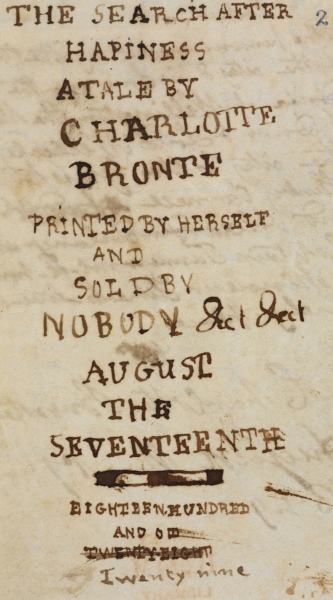 THE SEARCH AFTER 2
HAPINESS
A TALE BY
CHARLOTTE
BRONTE
PRINTED BY HERSELF
AND
SOLD BY
NOBODY &ct &ct
AUGUST
THE
SEVENTEENTH
EIGHTEEN HUNDRED
AND
TWENTY EIGHT
Twenty nine